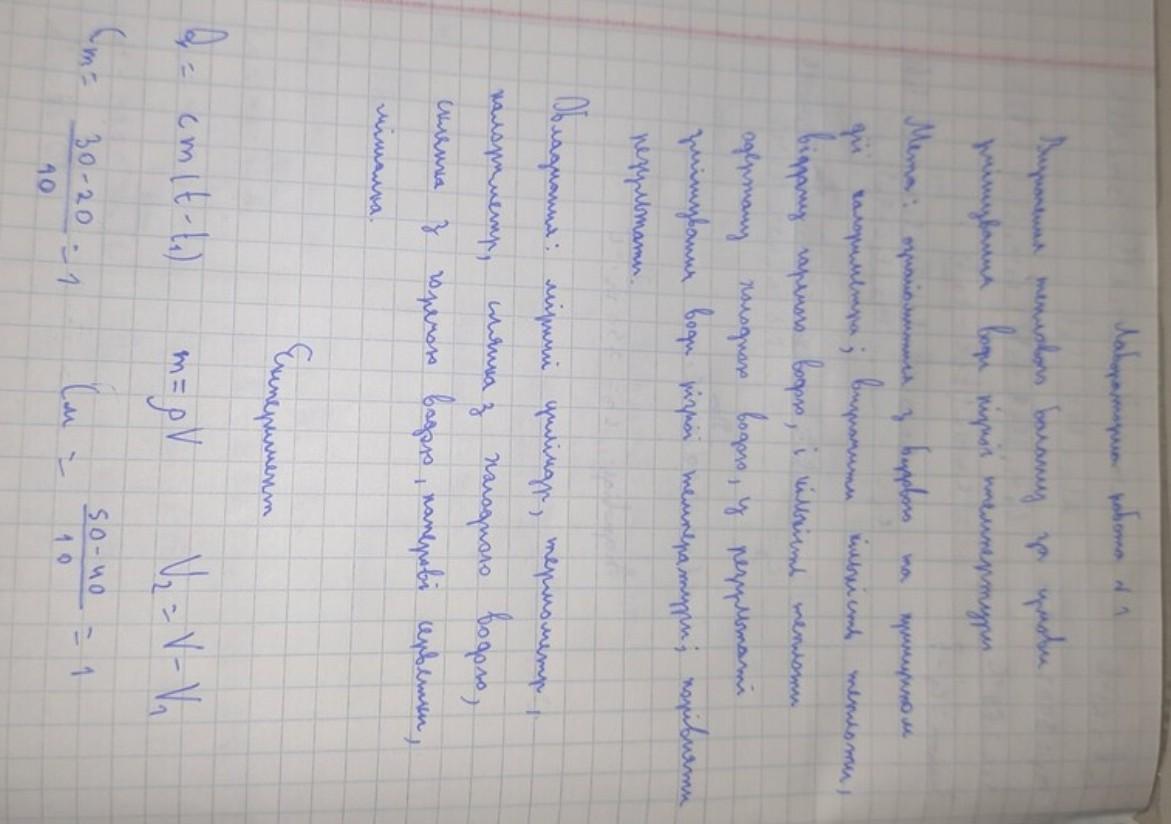 Лабораторна робота №1
Вивчення теплового балансу за умови
змішування води різної температури
Мета: ознайомитися з будовою та принципом
дії калориметра; визначити кількість теплоти,
віддану гарячою водою, і кількість теплоти
одержану холодною водою, у результаті
змішування води різної температури; порівняти
результати.
Обладнання: мірний циліндр, термометр,
калориметр, склянка з холодною водою,
склянка з гарячою водою, паперові серветки,
мішалка.
Експеримент
Q = cm(t-t₁) m=ρV V₂=V-V₁
Cm= 30-20/10 =1 Cм = 50-40/10 =1